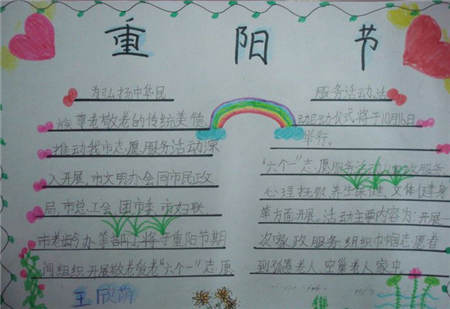 重阳节
为弘扬中华民
族尊老敬老的传统美德
推动我市志愿服务活动深
入开展,市文明办会同市民政
局,市总工会,团市委,市妇联,
市老龄办等部门将于重阳节期
间组织开展敬老爱老"六个一"志愿
服务活动,活
动启动仪式将于10月16日
举行。
"六个一"志愿服务活动
心理抚慰 养生保健、文体健身
等方面开展,活动主要内容为:开展一
次家政服务 组织巾帼志愿者
到孤寡老人 空巢老人家中
王欣